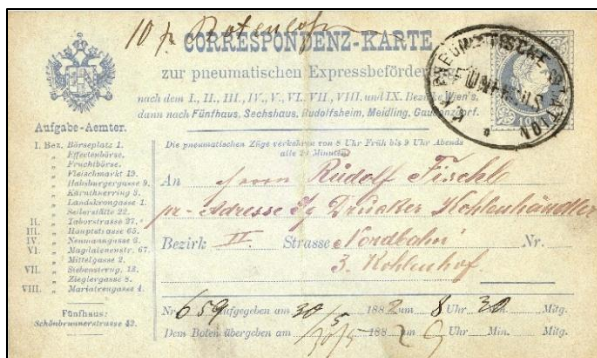 10 kr Botenlohn
CORRESPONDENZ-KARTE
zur pneumatischen Expressbeförderung
nach dem I., II., III., IV., V., VI. VII., VIII. und IX. Bezirke Wien's.
dann nach Fünfhaus, Sechshaus, Rudolfsheim, Meidling, Gaudenzdorf.
PNEUMATISCHE STATION
FÜNFHAUS
10
Aufgabe-Aemter.
I. Bez. Börseplatz 1.
Effectenbörse.
Fruchtbörse.
Fleischmarkt 19.
Habsburgergasse 9.
Kärnthnerring 3.
Landskrongasse 1.
Seilerstätte 22.
II. Taborstrasse 27.
III. Hauptstrasse 65.
IV. Neumanngasse 3.
VI. Magdalenenstr. 67.
Mittelgasse 2.
VII. Siebensterng. 13.
Zieglergasse 8.
VIII. Mariatreugasse 4.
Fünfhaus:
Schönbrunnerstrasse 42.
Die pneumatischen Züge verkehren von 8 Uhr Früh bis 9 Uhr Abends
alle 20 Minuten
An Herrn Rudolf Fischl
pr. Adresse Drucker Kohlenhändler
Bezirk II. Strasse Nordbahn Nr.
3. Kohlenhof.
Nr 659 Aufgegeben am 30/5 1882 um 8 Uhr 30 Mitg.
Dem Boten übergeben am 188 2 9 Uhr Min. Mitg.